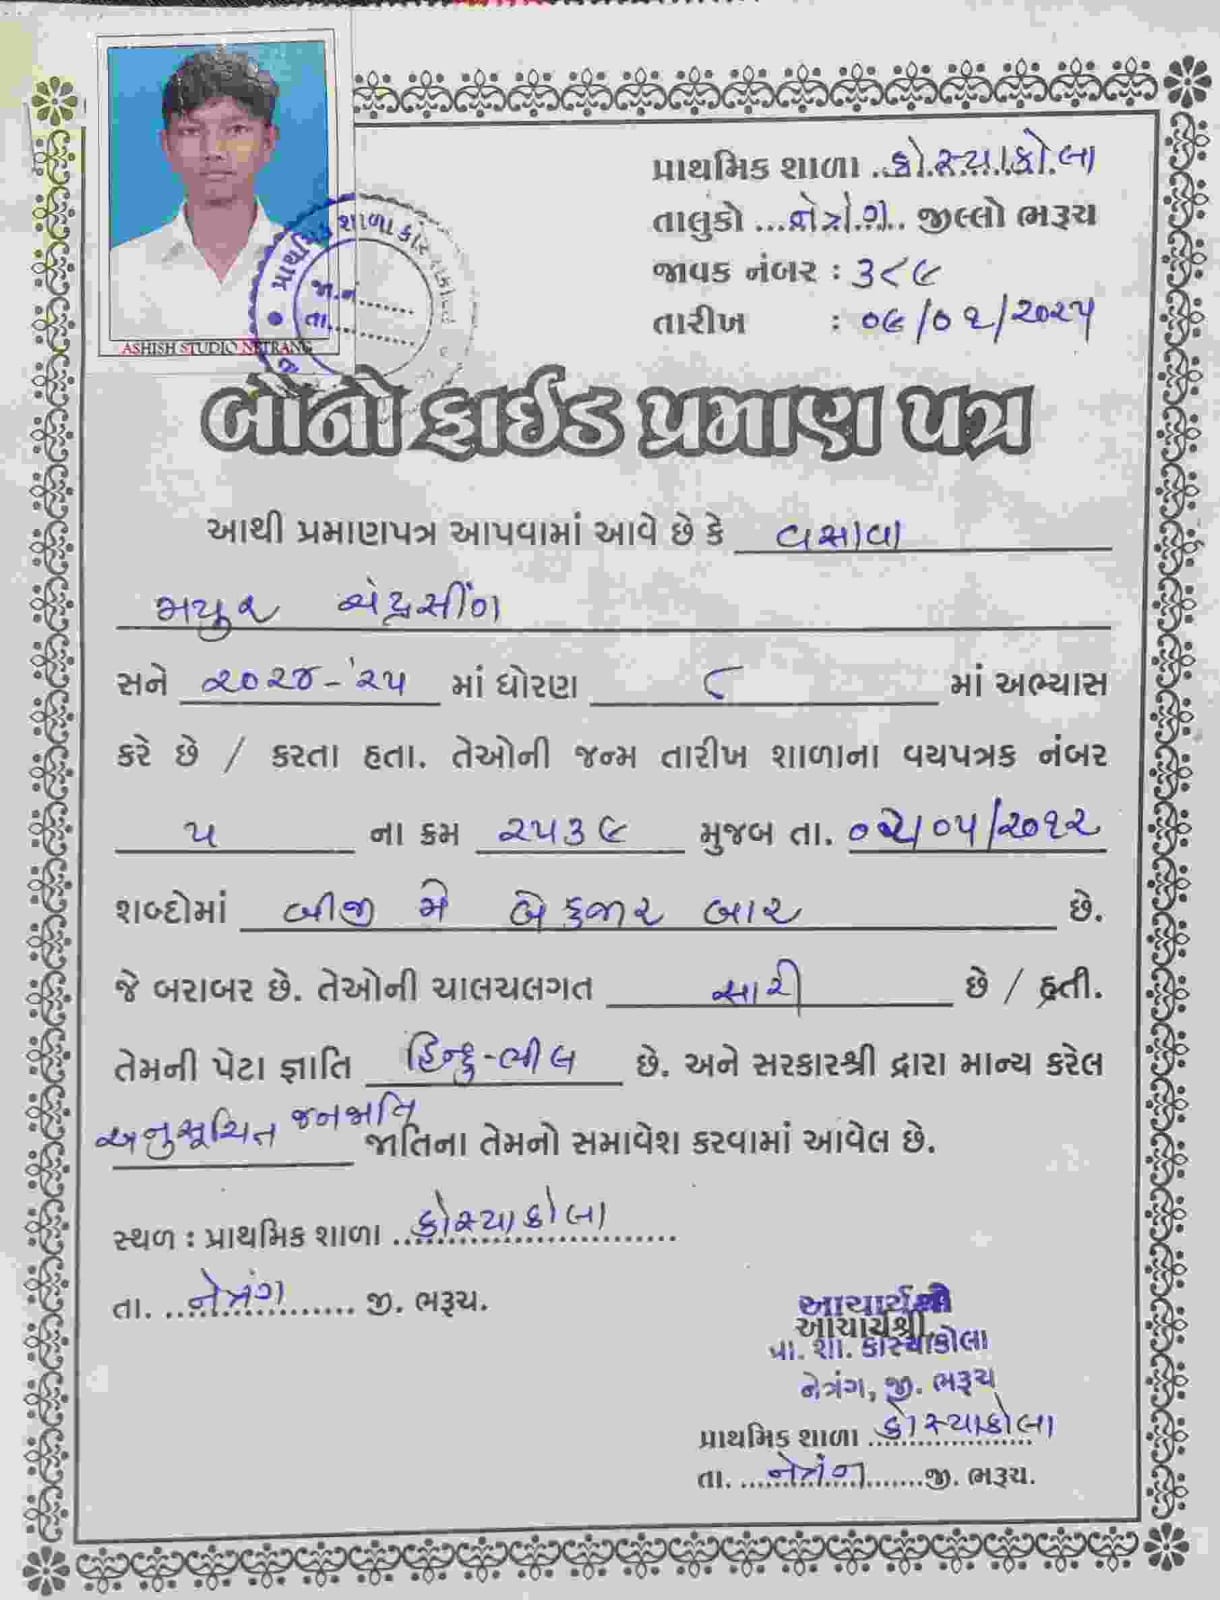 પ્રાથમિક શાળા ..કોસ્યાકોલા
તાલુકો ...નેત્રંગ.. જીલ્લો ભરૂચ
જાવક નંબર : ૩૮૯
તારીખ : ૦૯/૦૧/૨૦૨૫
શાળા
જા.નં.......
તા.............
ASHISH STUDIO NETRANG
બોનોફાઈડ પ્રમાણ પત્ર
આથી પ્રમાણપત્ર આપવામાં આવે છે કે વસાવા
મયુર ચંદ્રસીંગ
સને ૨૦૨૪-'૨૫ માં ધોરણ ૮ માં અભ્યાસ
કરે છે / કરતા હતા. તેઓની જન્મ તારીખ શાળાના વયપત્રક નંબર
૫ ના ક્રમ ૨૫૩૯ મુજબ તા. ૦૨/૦૫/૨૦૧૨
શબ્દોમાં બીજી મે બેહજાર બાર છે.
જે બરાબર છે. તેઓની ચાલચલગત સારી છે / હતી.
તેમની પેટા જ્ઞાતિ હિન્દુ-ભીલ છે. અને સરકારશ્રી દ્વારા માન્ય કરેલ
અનુસૂચિત જનજાતિ જાતિના તેમનો સમાવેશ કરવામાં આવેલ છે.
સ્થળ : પ્રાથમિક શાળા ..કોસ્યાકોલા........
તા. ...નેત્રંગ....... જી. ભરૂચ.
આચાર્યશ્રી
આચાર્યશ્રી
પ્રા. શા. કોસ્યાકોલા
નેત્રંગ, જી. ભરૂચ
પ્રાથમિક શાળા ..કોસ્યાકોલા
તા. ....નેત્રંગ.......જી. ભરૂચ.